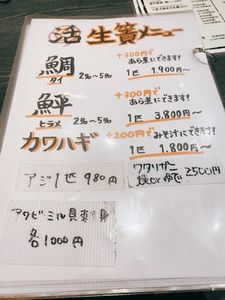 活 生簀メニュー
+300円で
あら煮にできます!
鯛
タイ 2~5~ 1匹 1,900円~
+300円で
あら煮にできます!
鮃
ヒラメ 2~5~ 1匹 3,800円~
カワハギ +200円でみそ汁にできます!
1匹 1,800円~
アジ1匹 980円
ワタリガニ
焼or茹で 2500円
アワビ・ミル貝刺身
各1000円